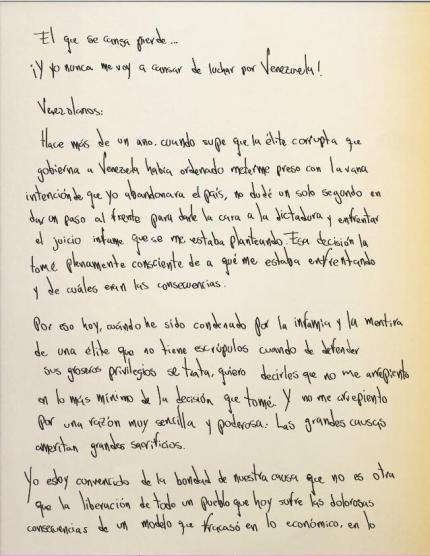 El que se cansa pierde...
¡Y yo nunca me voy a cansar de luchar por Venezuela!
Venezolanos:
Hace más de un año, cuando supe que la élite corrupta que
gobierna a Venezuela había ordenado meterme preso con la vana
intención de que yo abandonara el país, no dudé un solo segundo en
dar un paso al frente para darle la cara a la dictadura y enfrentar
el juicio infame que se me estaba planteando. Esa decisión la
tomé plenamente consciente de a qué me estaba enfrentando
y de cuáles eran las consecuencias.
Por eso hoy, cuando he sido condenado por la infamia y la mentira
de una élite que no tiene escrúpulos cuando de defender
sus groseros privilegios se trata, quiero decirles que no me arrepiento
en lo más mínimo de la decisión que tomé. Y no me arrepiento
por una razón muy sencilla y poderosa: Las grandes causas
ameritan grandes sacrificios.
Yo estoy convencido de la bondad de nuestra causa que no es otra
que la liberación de todo un pueblo que hoy sufre las dolorosas
consecuencias de un modelo que fracasó en lo económico, en lo